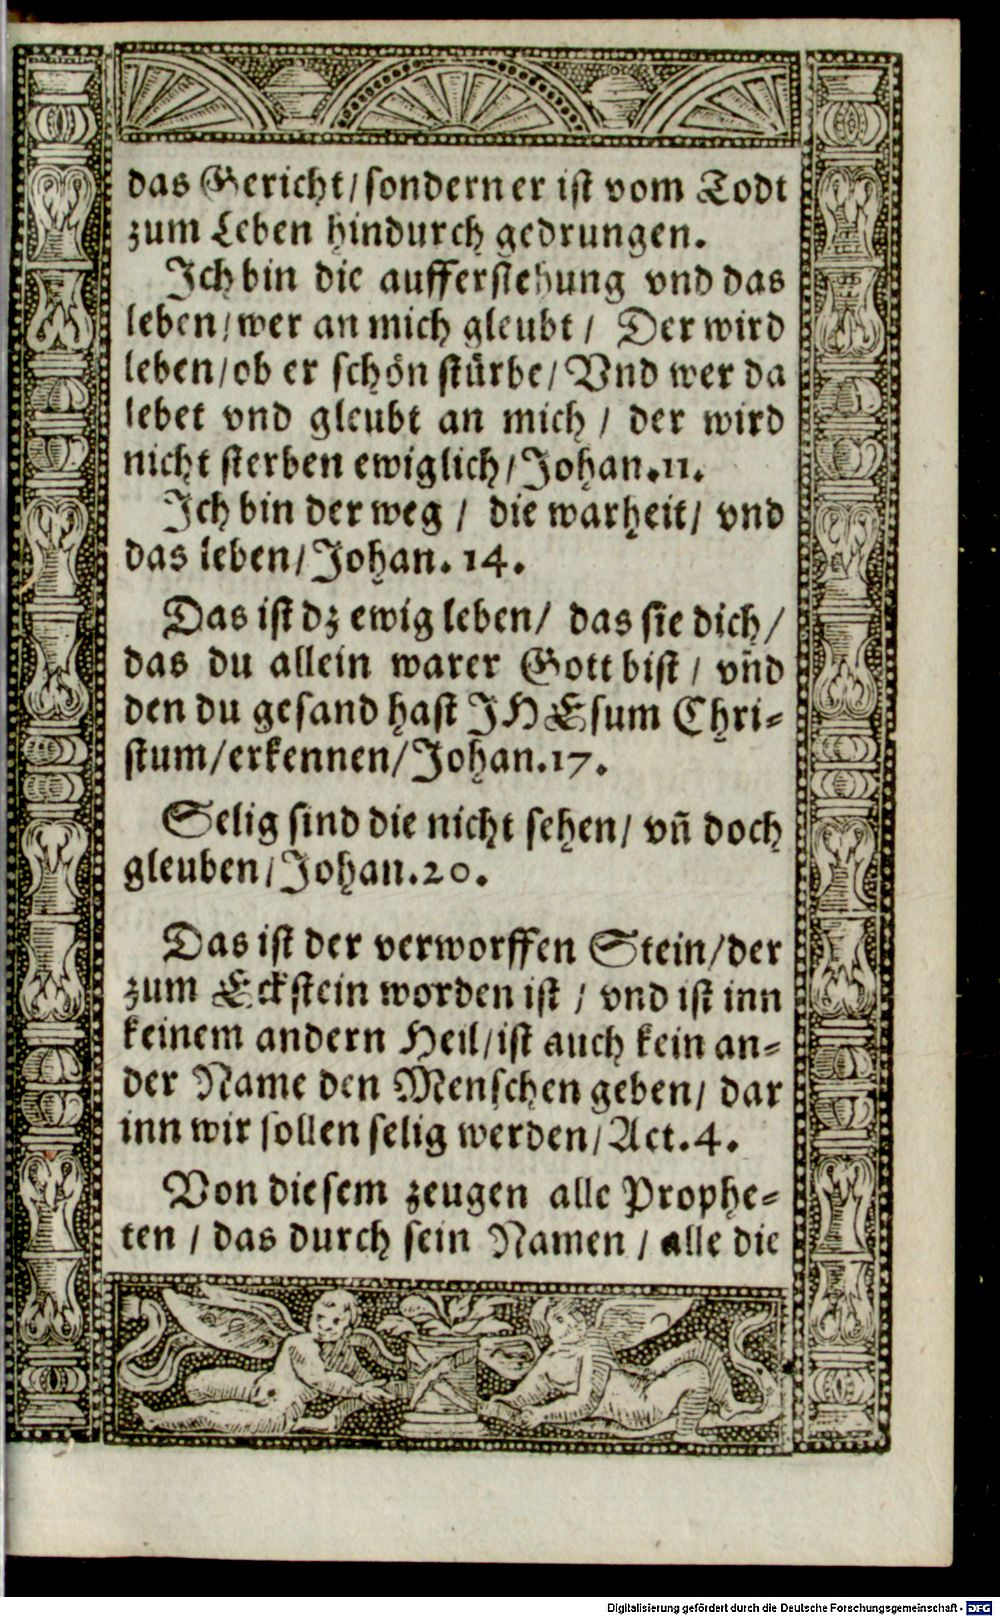 das Gericht/sondern er ist vom Todt
zum Leben hindurch gedrungen.
Ich bin die aufferstehung vnd das
leben/wer an mich gleubt / Der wird
leben/ob er schön stürbe/Vnd wer da
lebet vnd gleubt an mich / der wird
nicht sterben ewiglich/Johan.11.
Ich bin der weg / die warheit/ vnd
das leben/Johan. 14.
Das ist dz ewig leben/ das sie dich/
das du allein warer Gott bist / vñd
den du gesand hast JHEsum Chri-
stum/erkennen/Johan.17.
Selig sind die nicht sehen/ vñ doch
gleuben/Johan.20.
Das ist der verworffen Stein/der
zum Eckstein worden ist / vnd ist inn
keinem andern Heil/ist auch kein an-
der Name den Menschen geben/ dar
inn wir sollen selig werden/Act.4.
Von diesem zeugen alle Prophe-
ten / das durch sein Namen / alle die
Digitalisierung gefördert durch die Deutsche Forschungsgemeinschaft - DFG